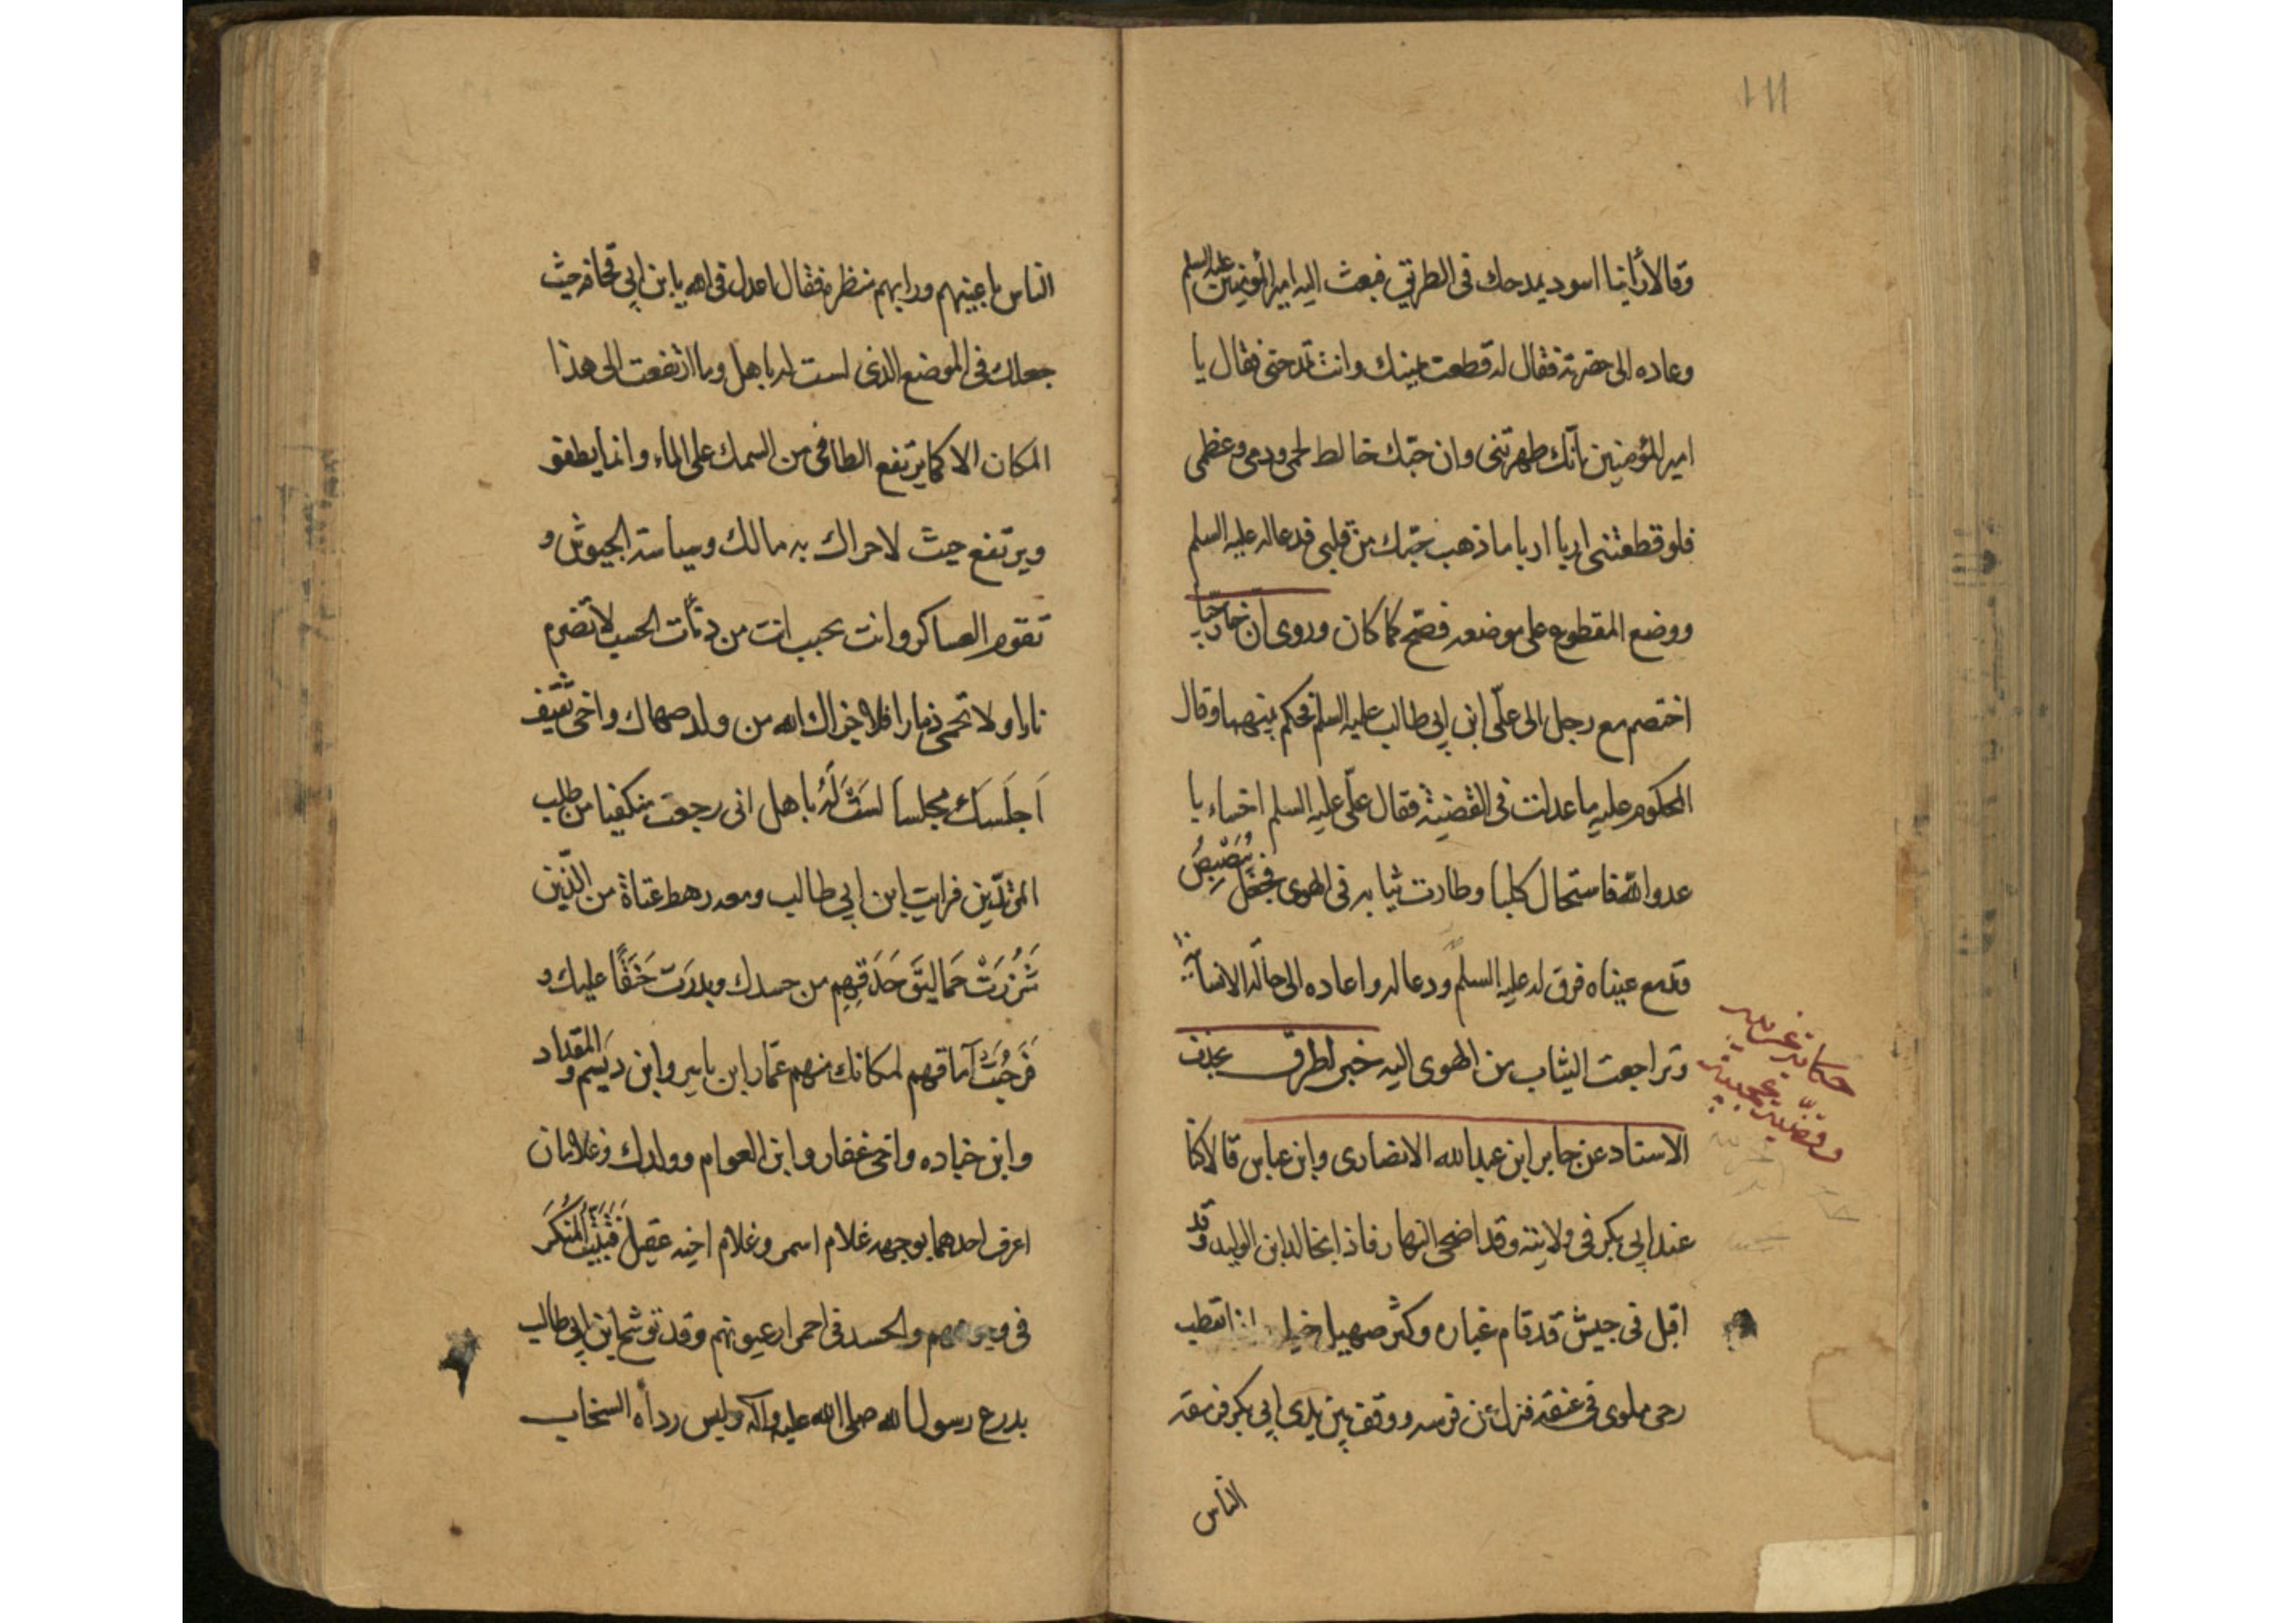 ١١١
وقالا رأينا اسود يمدحك فى الطريق فبعث اليه امير المؤمنين عليه السلم
وعاده الى حضرته فقال له قطعت يمينك وانت تمدحنى فقال يا
امير المؤمنين انّك طهرتنى وان حبّك خالط لحمى ودمى وعظمى
فلو قطعتنى اربا اربا ما ذهب حبّك من قلبى فدعا له عليه السلم
ووضع المقطوع على موضعه فصح كما كان وروى ان خارجيا
اختصم مع رجل الى علىّ ابن ابى طالب عليه السلم فحكم بينهما وقال
المحكوم عليه ما عدلت فى القضية فقال علىّ عليه السلم اخساء يا
عدو الله فاستحال كلبا وطارت ثيابه فى الهوى فجعل يُبَصْبِصُ
وتدمع عيناه فرق له عليه السلم ودعا له واعاده الى حاله الانسانية
وتراجعت الثياب من الهوى اليه خبر الطرق بحذف
حكاية غريبه
وقضية عجيبة
الاسناد عن جابر ابن عبد الله الانصارى وابن عباس قالا كنا
عند ابى بكر فى ولايته وقد اضحى النهار فاذا بخالد ابن الوليد وقد
اقبل فى جيش قد قام غباره وكثر صهيل خيله اذا بقطب
رحى ملوى فى عنقه فنزل عن فرسه ووقف بين يدى ابى بكر فرمقه
الناس
الناس باعينهم ورابهم منظره فقال اعدل فى اهه يا ابن ابى قحافه حيث
جعلك فى الموضع الذى لست له باهل وما ارتفعت الى هذا
المكان الا كما يرتفع الطافى من السمك على الماء وانما يطفو
ويرتفع حيث لا حراك به مالك وسياسة الجيوش و
تقوم العساكر وانت بحيب انت من دنات الحسب لا تضرم
نارا ولا تحمى ذمارا فلا جزاك الله من ولد صهاك واخى ثقيف
اَجلَسَك مجلسا لسْتَ لَهُ باهل انى رجعت منكفيا من طلب
المرتدّين فرايت ابن ابى طالب ومعه رهط عتاة من الّذين
شَزُرَتْ حَمَاليق حَدَقِهِم من حسدك وبدرَت حَنَقًا عليك و
قَرَحُتْ آماقهم لمكانك منهم عمّار ابن ياسر وابن ديسم والمقداد
وابن جناده واخى غفار وابن العوام وولدك وغلامان
اعرف احدهما بوجهه غلام اسمر وغلام اخيه عقيل فتبيّن المُنْكَرَ
فى وجوههم والحسد فى احمرار عيونهم وقد توشح ابن ابى طالب
بدرع رسول الله صلى الله عليه وآله ولبس رداه السحاب